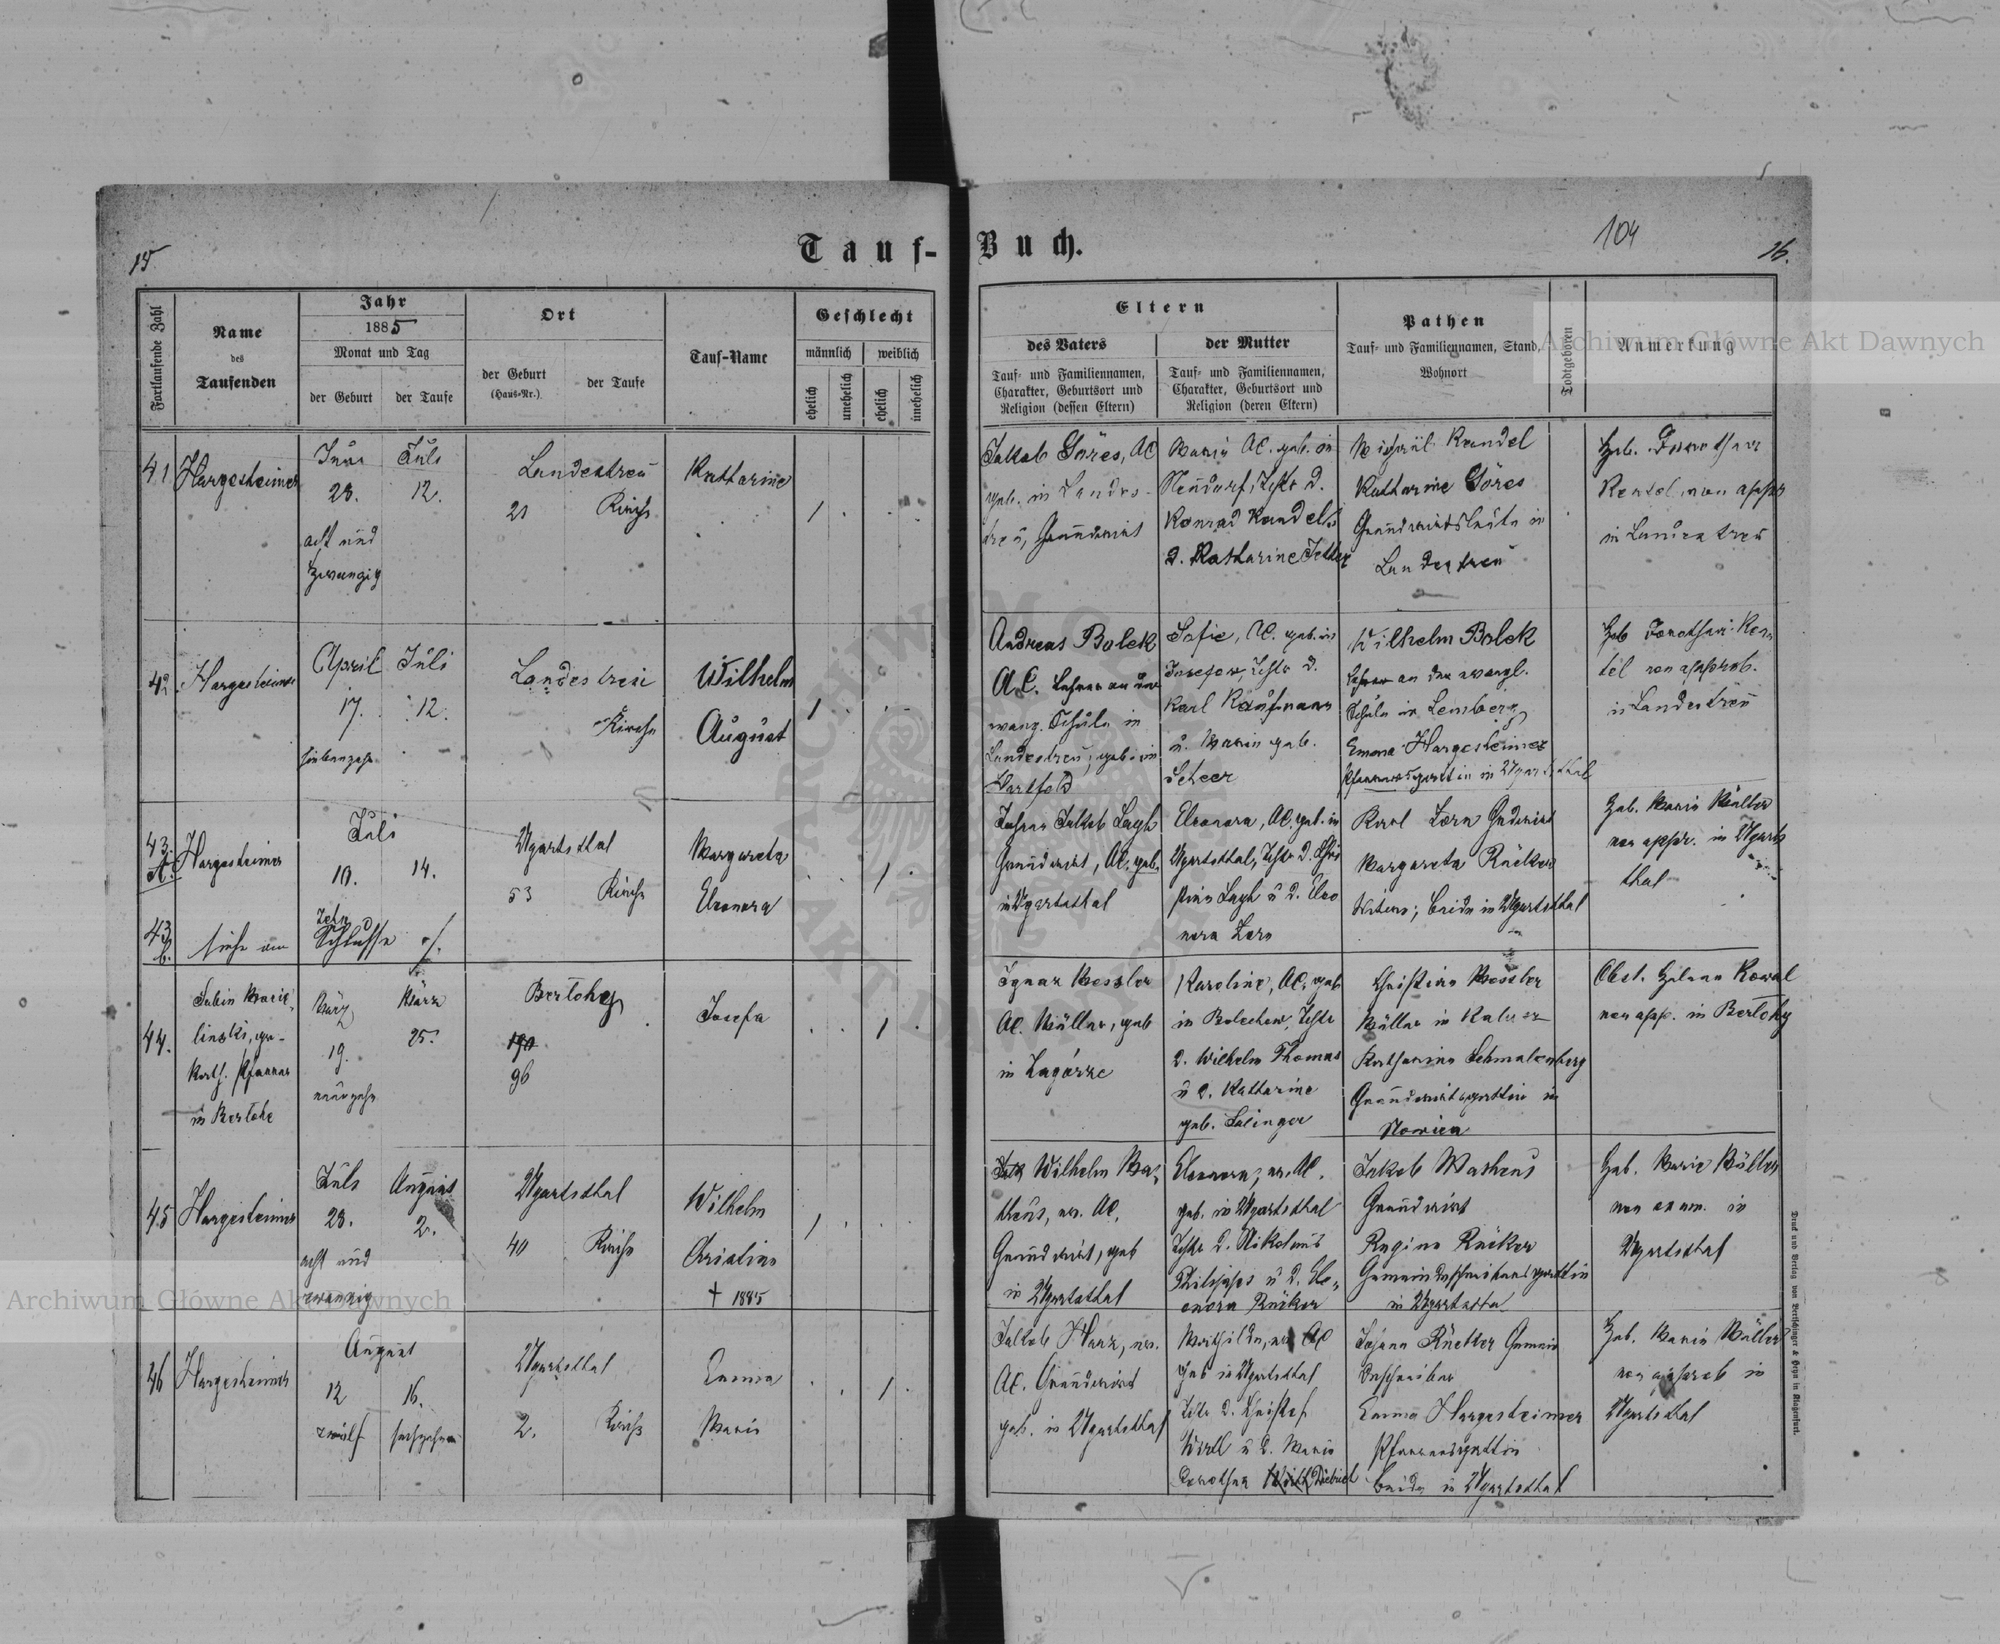 15
Tauf-Buch.
104
16.
Fortlaufende Zahl
Name
des
Taufenden
Jahr
1885
Monat und Tag
der Geburt
der Taufe
Ort
der Geburt
(Haus-Nr.)
der Taufe
Tauf-Name
Geschlecht
männlich
weiblich
ehelich
unehelich
ehelich
unehelich
Eltern
des Vaters
Tauf- und Familiennamen,
Charakter, Geburtsort und
Religion (dessen Eltern)
der Mutter
Tauf- und Familiennamen,
Charakter, Geburtsort und
Religion (deren Eltern)
Pathen
Tauf- und Familiennamen, Stand,
Wohnort
Todtgeboren
Anmerkung
41
Hargesheimer
28.
acht und
zwanzig
Juli
12.
Landestreu
21
Kirche
Katharine
1
Jakob Göres, AC
geb. in Landes-
treu, Grundwirt
Maria AC. geb. in
Neudorf, Tchtr d.
Konrad Kandel
d. Katharine
Michael Kandel
Katharine Göres
Grundwirtsleute in
Landestreu
Heb. Dorothea
in Landestreu
42
Hargesheimer
April
17.
siebenzehn
Juli
12.
Landestreu
Kirche
Wilhelm
August
1
Andreas Bolek
AC. Lehrer an der
evang. Schule in
Landestreu, geb. in
Sofie, AC. geb. in
Josefow, Tchtr d.
Karl Kaufmann
u. Marie geb.
Scheer
Wilhelm Bolek
Lehrer an der evangl.
Schule in Lemberg
Emma Hargesheimer
Pfarrersgattin in Ugartsthal
Heb Dorothea
in Landestreu
43.
A.
Hargesheimer
Juli
10.
zehn
14.
Ugartsthal
53
Kirche
Margareta
Eleonora
1
Grundwirt, AC. geb.
in Ugartsthal
Eleonora, AC. geb. in
Ugartsthal, Tchtr d. Chri
nora Lorn
Karl Lorn
Margareta Rücker
Witwe; beide in Ugartsthal
Heb. Marie Müller
non appr. in Ugarts
thal
43
b.
siehe am
Schlusse
44.
kath. Pfarrer
März
19.
neunzehn
März
25.
Bertohy
190
96
Josefa
1
Ignaz Messler
AC. Müller, geb
in Zagórze
Karoline, AC. geb
in Bolechow, Tchtr
d. Wilhelm Thomas
u d. Katharine
geb. Salinger
Christian Messler
Müller in Kalusz
Katharina Schmalenberg
Grundwirtsgattin in
Nowica
Kowal
non app. in Bertohy
45
Hargesheimer
Juli
28.
acht und
zwanzig
August
2.
Ugartsthal
40
Kirche
Wilhelm
Christian
† 1885
1
Wilhelm Ma-
theus, ev. AC.
Grundwirt, geb
in Ugartsthal
Eleonora, ev. AC.
geb. in Ugartsthal
Tchtr d. Nikolaus
Philipps u d. Ele-
onora Rücker
Jakob Matheus
Grundwirt
Regina Rücker
Gemeindeschreibersgattin
in Ugartsthal
Heb. Marie Müller
non exam. in
Ugartsthal
46
Hargesheimer
August
12
zwölf
16.
sechzehn
Ugartsthal
2.
Kirche
Emma
Marie
1
Jakob Harz, ev.
AC. Grundwirt
geb. in Ugartsthal
Mathilde, ev AC
geb in Ugartsthal
Tchtr d. Christof
u d. Marie
Dorothea
Emma Hargesheimer
Pfarrersgattin
beide in Ugartsthal
Heb. Marie Müller
non approb in
Ugartsthal
Archiwum Główne Akt Dawnych
Archiwum Główne Akt Dawnych